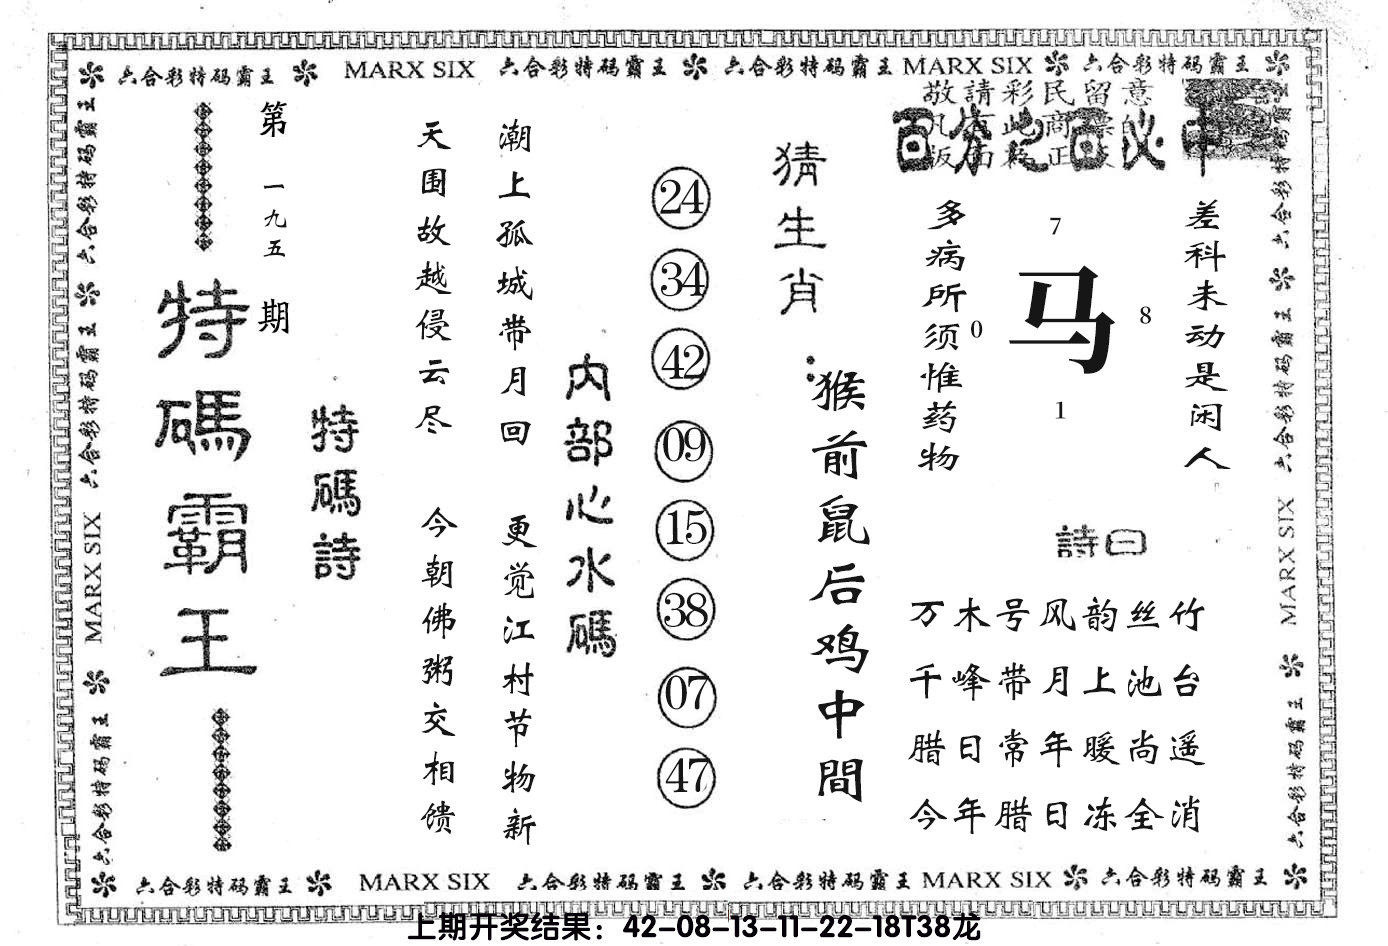 六合彩特码霸王 MARX SIX 六合彩特码霸王 六合彩特码霸王 MARX SIX 六合彩特码霸王
敬請彩民留意
百分之百必中
差科未动是闲人
7
马
0
8
1
多病所须惟药物
詩曰
万木号风韵丝竹
千峰带月上池台
腊日常年暖尚遥
今年腊日冻全消
猜生肖:
猴前鼠后鸡中間
24
34
42
09
15
38
07
47
内部心水碼
潮上孤城带月回 更觉江村节物新
天围故越侵云尽 今朝佛粥交相馈
特碼詩
第一九五期
特碼霸王
六合彩特码霸王 六合彩特码霸王 MARX SIX 六合彩特码霸王
六合彩特码霸王 六合彩特码霸王 MARX SIX 六合彩特码霸王
六合彩特码霸王 MARX SIX 六合彩特码霸王 六合彩特码霸王 MARX SIX 六合彩特码霸王
上期开奖结果：42-08-13-11-22-18T38龙